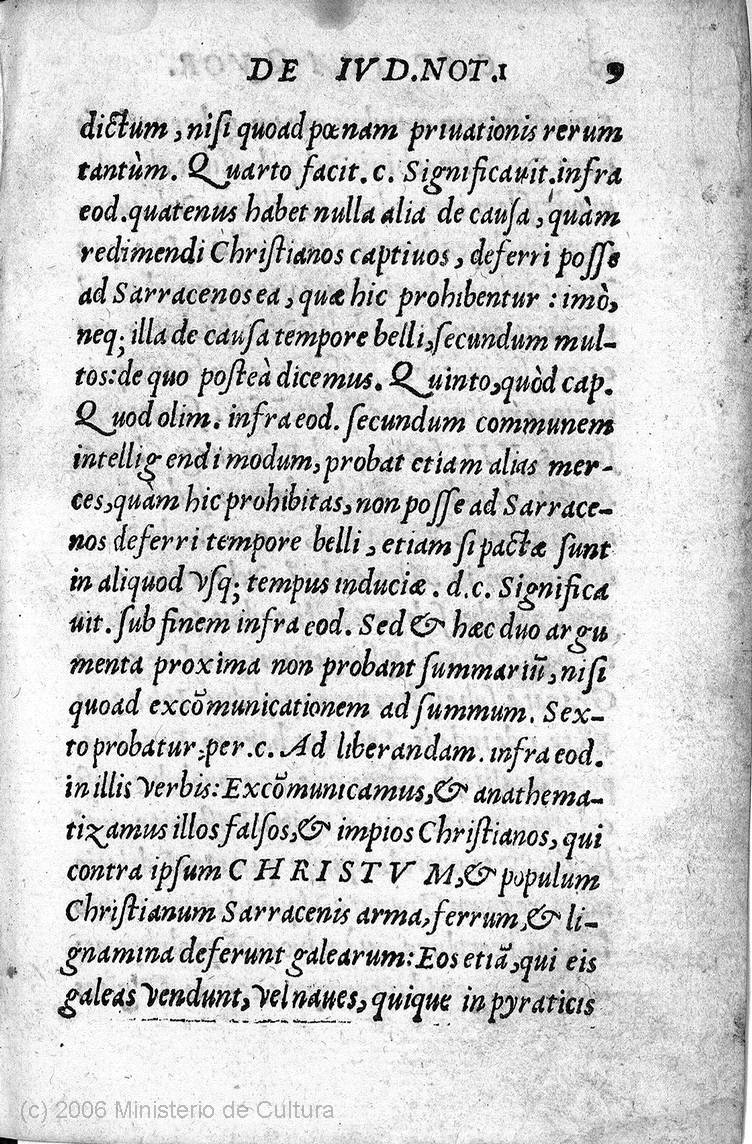 DE IVD.NOT.1 9
dictum, nisi quoad pœnam priuationis rerum
tantùm. Quarto facit. c. Significauit. infra
eod. quatenus habet nulla alia de causa, quàm
redimendi Christianos captiuos, deferri posse
ad Sarracenos ea, quæ hic prohibentur : imò,
neq; illa de causa tempore belli, secundum mul-
tos: de quo posteà dicemus. Quinto, quòd cap.
Quod olim. infra eod. secundum communem
intelligendi modum, probat etiam alias mer-
ces, quàm hic prohibitas, non posse ad Sarrace-
nos deferri tempore belli, etiam si pactæ sunt
in aliquod vsq; tempus induciæ. d.c. Significa
uit. sub finem infra eod. Sed & hæc duo argu
menta proxima non probant summariũ, nisi
quoad excõmunicationem ad summum. Sex-
to probatur: per. c. Ad liberandam. infra eod.
in illis verbis: Excõmunicamus, & anathema-
tizamus illos falsos, & impios Christianos, qui
contra ipsum CHRISTVM, & populum
Christianum Sarracenis arma, ferrum, & li-
gnamina deferunt galearum: Eos etiã, qui eis
galeas vendunt, vel naues, quique in pyraticis
(c) 2006 Ministerio de Cultura